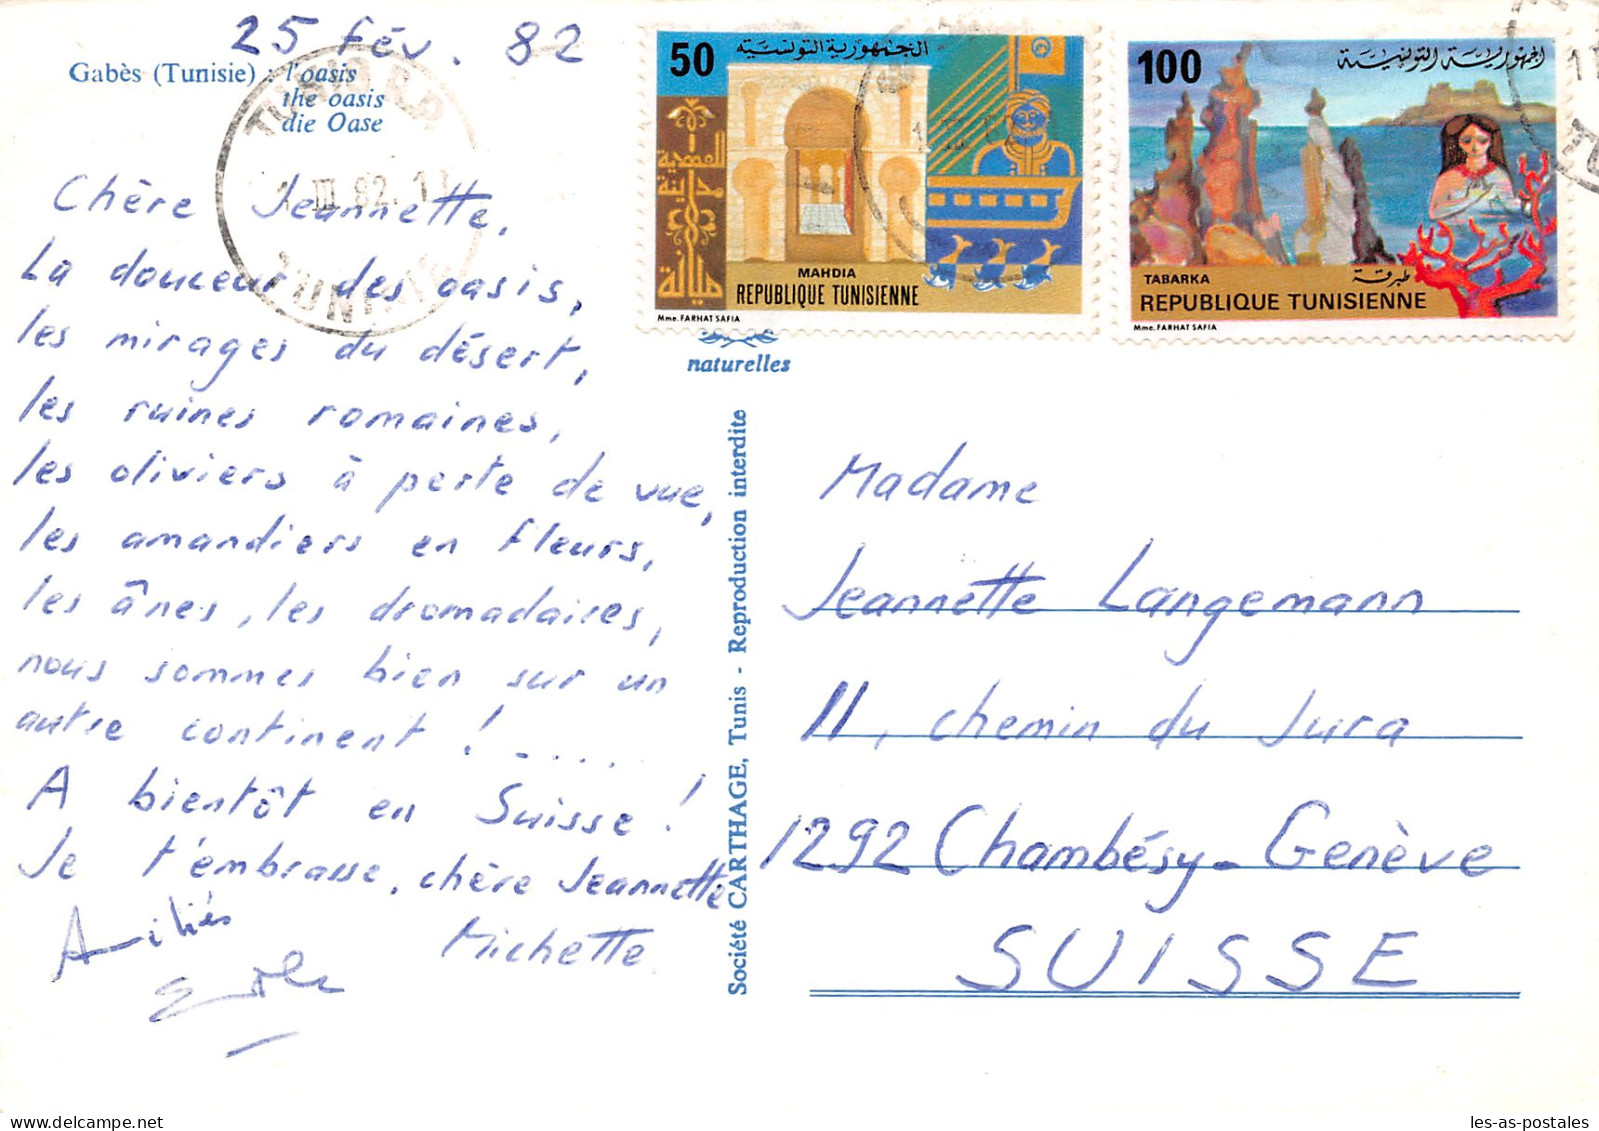 25 fév. 82
Gabès (Tunisie) : l'oasis
the oasis
die Oase
Chère Jeannette,
La douceur des oasis,
les mirages du désert,
les ruines romaines,
les oliviers à perte de vue,
les amandiers en fleurs,
les ânes, les dromadaires,
nous sommes bien sur un
autre continent ! .....
A bientôt en Suisse !
Je t'embrasse, chère Jeannette
Michette
Amitiés
50
الجمهورية التونسية
MAHDIA
REPUBLIQUE TUNISIENNE
Mme. FARHAT SAFIA
100
الجمهورية التونسية
TABARKA
طبرقة
REPUBLIQUE TUNISIENNE
Mme. FARHAT SAFIA
naturelles
Société CARTHAGE, Tunis - Reproduction interdite
Madame
Jeannette Langemann
11, chemin du Jura
1292 Chambésy-Genève
SUISSE
les-as-postales